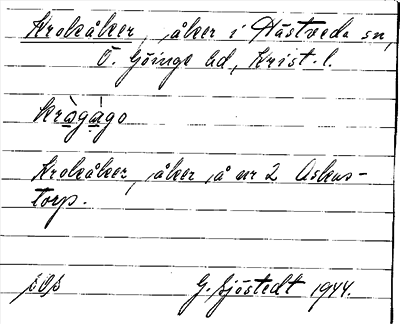 Krokåker, åker i Hästveda sn,
Ö. Göinge hd, Krist. l.
krågågo
Krokåker, åker å nr 2 Askens-
torp.
G. Sjöstedt 1944.